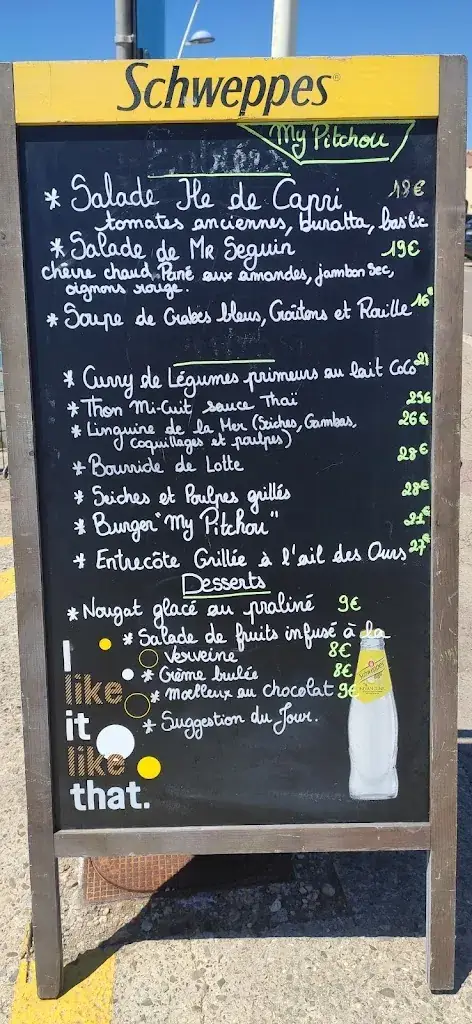 Schweppes
My Pitchou
* Salade Ile de Capri 18€
tomates anciennes, buratta, basilic
* Salade de Mr Seguin 19€
chèvre chaud, Pané aux amandes, jambon Sec,
oignons rouge.
* Soupe de Crabes bleus, Croûtons et Rouille 16€
* Curry de Légumes primeurs au lait CoCo 21
* Thon Mi-Cuit sauce Thaï 25€
* Linguine de la Mer (Seiches, Gambas, 26€
coquillages et poulpes)
* Bourride de Lotte 28€
* Seiches et Poulpes grillés 28€
* Burger "My Pitchou" 21€
* Entrecôte Grillée à l'ail des Ours 27€
Desserts
* Nougat glacé au praliné 9€
* Salade de fruits infusé à la
Verveine 8€
* Crème brulée 8€
* Moelleux au chocolat 9€
* Suggestion du Jour.
I
like
it
like
that.
Schweppes